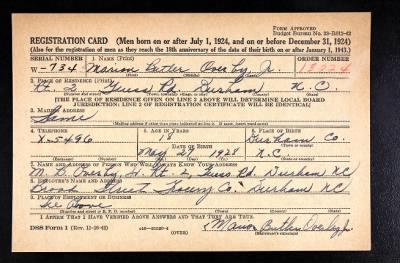 FORM APPROVED
Budget Bureau No. 33-R012-42
REGISTRATION CARD (Men born on or after July 1, 1924, and on or before December 31, 1924)
(Also for the registration of men as they reach the 18th anniversary of the date of their birth on or after January 1, 1943.)
SERIAL NUMBER 1. NAME (Print) ORDER NUMBER
W-734 Marion Butler Overby Jr.
2. PLACE OF RESIDENCE (Print)
Rt. 2 Guess Rd. Durham N.C.
[THE PLACE OF RESIDENCE GIVEN ON LINE 2 ABOVE WILL DETERMINE LOCAL BOARD
JURISDICTION; LINE 2 OF REGISTRATION CERTIFICATE WILL BE IDENTICAL]
3. MAILING ADDRESS
Same
4. TELEPHONE 5. AGE IN YEARS 6. PLACE OF BIRTH
X-5496 18 Durham Co.
DATE OF BIRTH
May 27 N.C.
7. NAME AND ADDRESS OF PERSON WHO WILL ALWAYS KNOW YOUR ADDRESS
M. B. Overby, Sr. Rt. 2, Guess Rd. Durham NC
8. EMPLOYER'S NAME AND ADDRESS
Broad Street Durham NC
9. PLACE OF EMPLOYMENT OR BUSINESS
Above
I AFFIRM THAT I HAVE VERIFIED ABOVE ANSWERS AND THAT THEY ARE TRUE.
DSS Form 1 (OVER) Marion Butler Overby Jr.